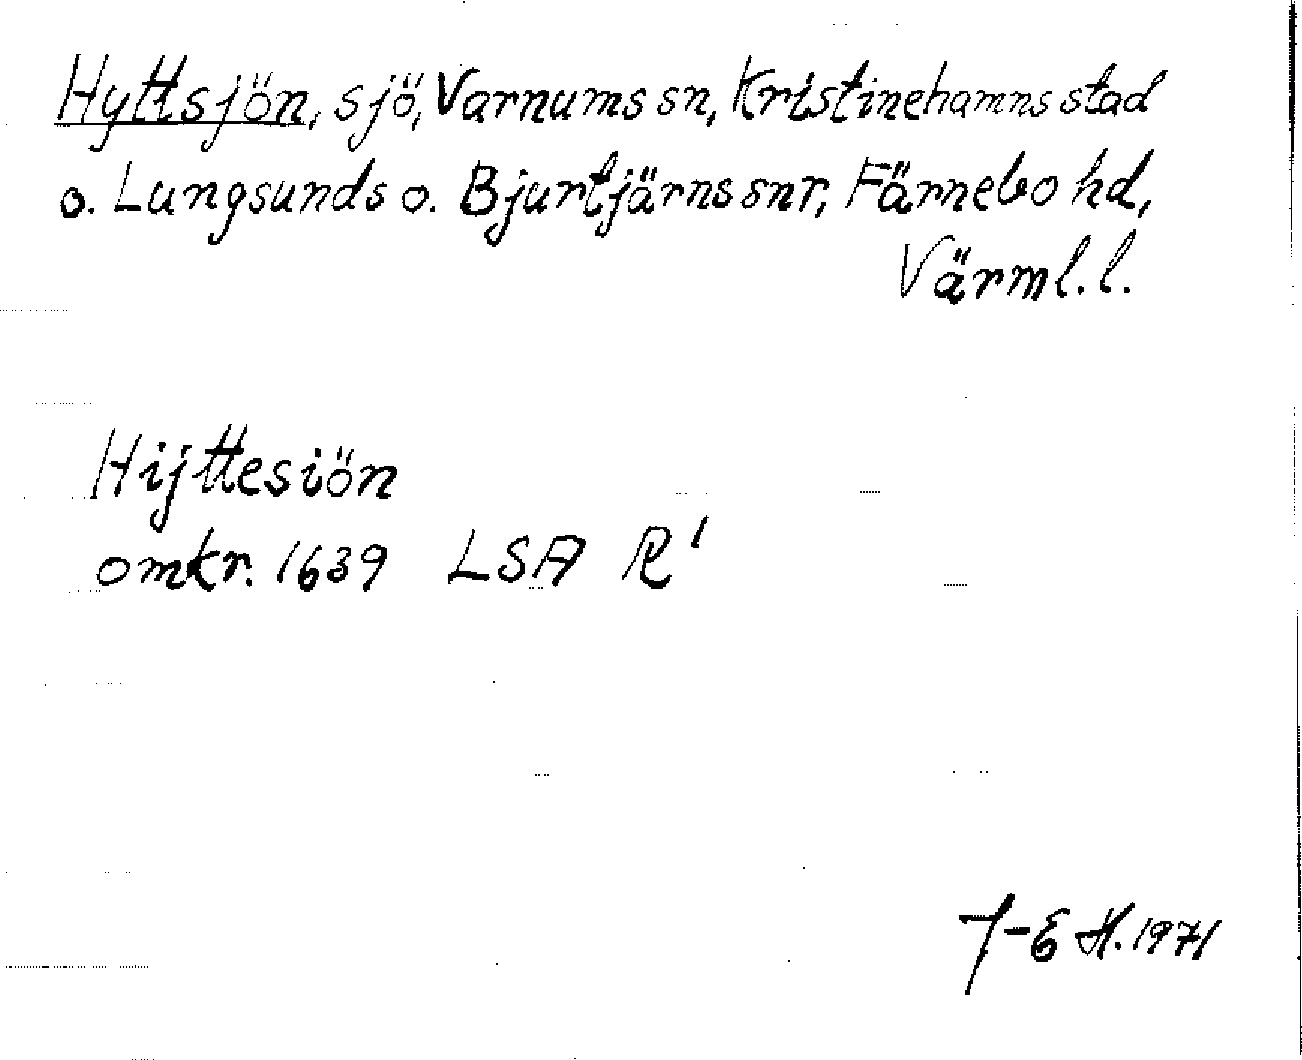 Hyttsjön, sjö, Varnums sn, Kristinehamns stad
o. Lungsunds o. Bjurtjärns snr, Färnebo hd,
Värml. l.
Hijttesiön
omkr. 1639 LSA R¹
J-E H. 1971